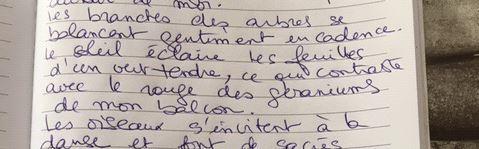 autour de moi.
Les branches des arbres se
balancent gentiment en cadence.
Le soleil éclaire les feuilles
d'un vert tendre, ce qui contraste
avec le rouge des géraniums
de mon balcon.
Les oiseaux s'invitent à la
danse et font de sacrés